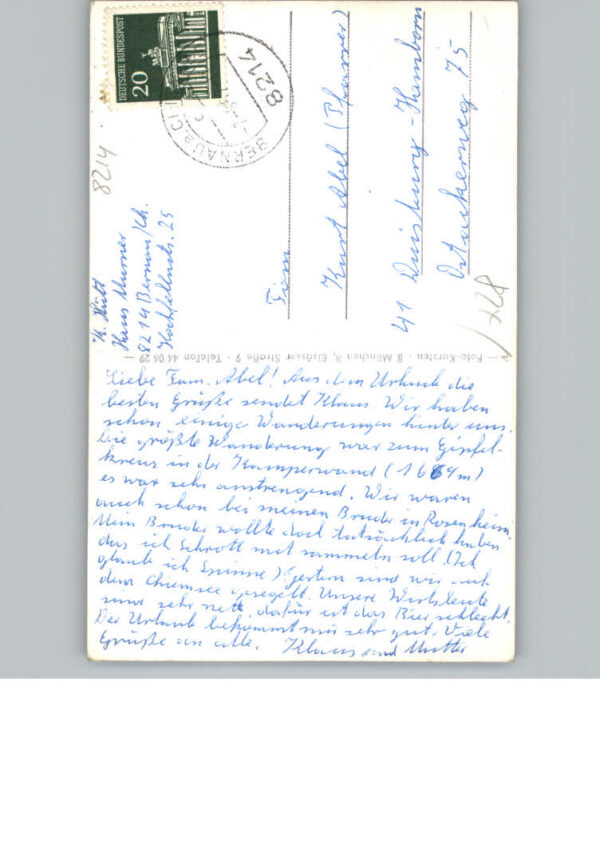 DEUTSCHE BUNDESPOST
20
8214
BERNAU a. CH
8214
Hans Murner
8214 Bernau/Ch.
Hochfellnstr. 25
Fam
Kurt Abel (Pfarrer)
41 Duisburg-Hamborn
Ostackerweg 75
— Foto-Karsten · 8 München 8, Elsässer Straße 9 · Telefon 44 06 29 —
Liebe Fam. Abel! Aus dem Urlaub die
besten Grüße sendet Klaus. Wir haben
schon einige Wanderungen hinter uns.
Die größte Wanderung war zum Gipfel-
kreuz in der Kamperwand (1664m)
es war sehr anstrengend. Wir waren
auch schon bei meinen Bruder in Rosenheim.
Mein Bruder wollte doch tatsächlich haben
das ich Schrott mit sammeln soll! (Ich
glaube ich Spinne) gestern sind wir auf
dem Chiemsee gesegelt. Unsere Wirtsleute
sind sehr nett dafür ist das Bier schlecht.
Der Urlaub bekommt mir sehr gut. Viele
Grüße an alle. Klaus und Mutter